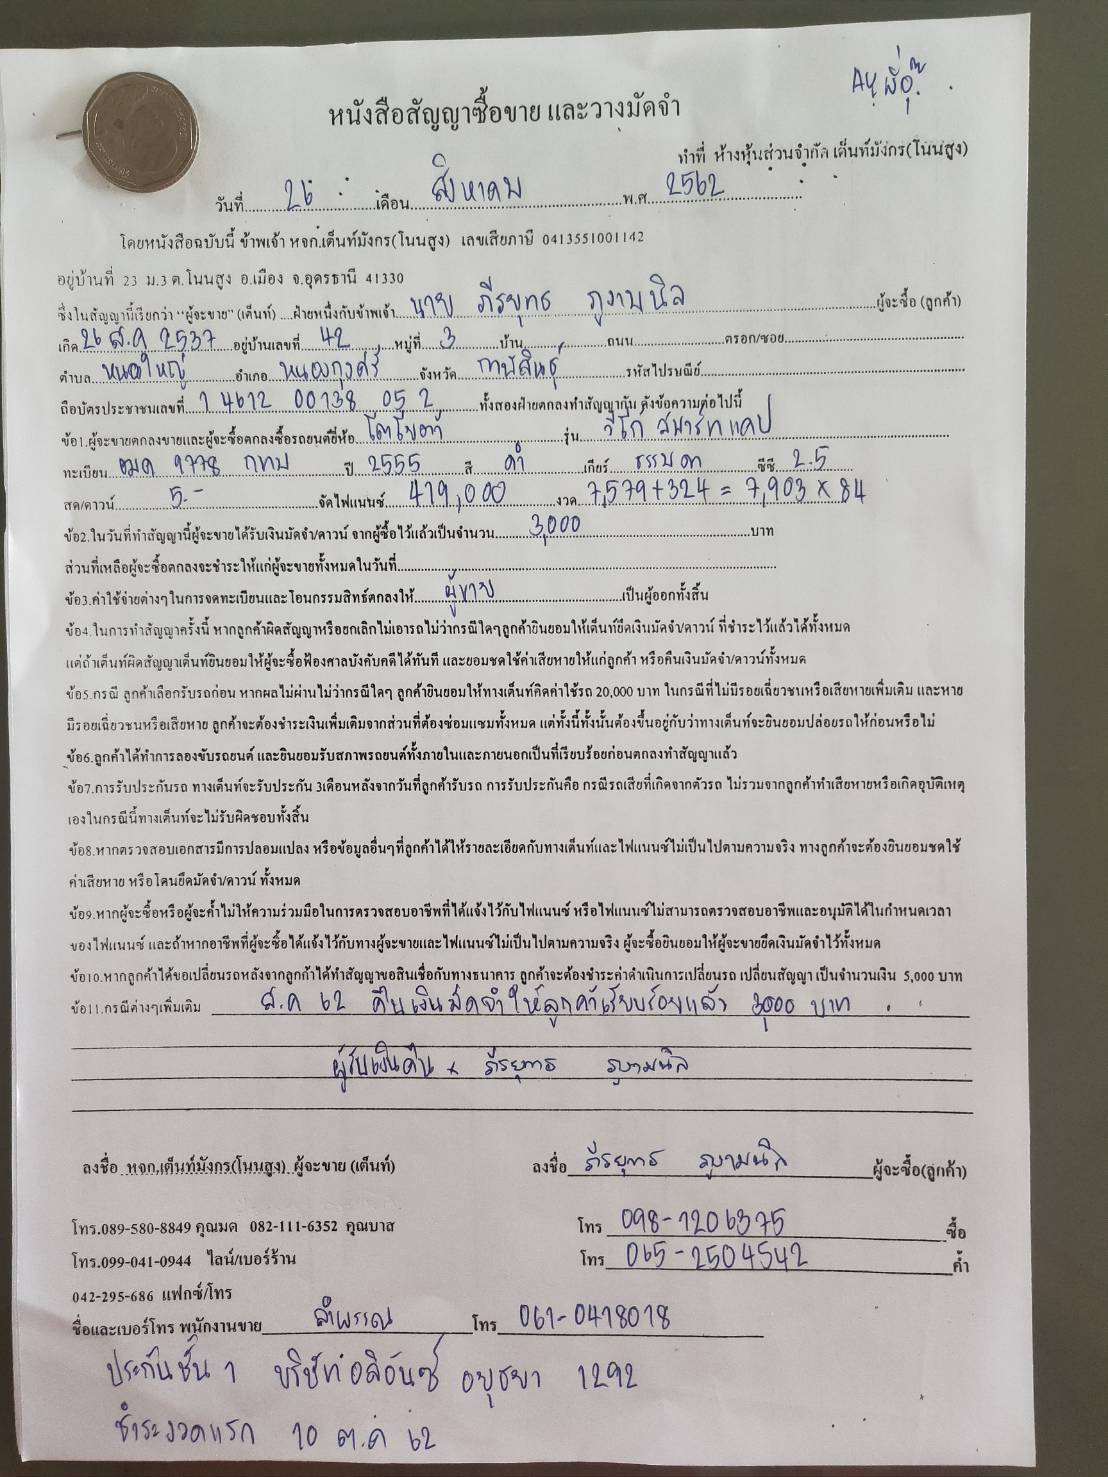 หนังสือสัญญาซื้อขาย และวางมัดจำ
ทำที่ ห้างหุ้นส่วนจำกัด เต็นท์มังกร(โนนสูง)
วันที่ 26 เดือน สิงหาคม พ.ศ. 2562
โดยหนังสือฉบับนี้ ข้าพเจ้า หจก.เต็นท์มังกร(โนนสูง) เลขเสียภาษี 0413551001142
อยู่บ้านที่ 23 ม.3 ต.โนนสูง อ.เมือง จ.อุดรธานี 41330
ซึ่งในสัญญานี้เรียกว่า "ผู้จะขาย" (เต็นท์) ฝ่ายหนึ่งกับข้าพเจ้า นาย ภีรยุทธ ภูงามนิล ผู้จะซื้อ (ลูกค้า)
เกิด 26 ส.ค 2537 อยู่บ้านเลขที่ 42 หมู่ที่ 3 บ้าน ถนน ตรอก/ซอย
ตำบล หนองใหญ่ อำเภอ หนองกุงศรี จังหวัด กาฬสินธุ์ รหัสไปรษณีย์
ถือบัตรประชาชนเลขที่ 1 4612 00138 05 2 ทั้งสองฝ่ายตกลงทำสัญญากัน ดังข้อความต่อไปนี้
ข้อ1.ผู้จะขายตกลงขายและผู้จะซื้อตกลงซื้อรถยนต์ยี่ห้อ โตโยต้า รุ่น วีโก้ สมาร์ทแคป
ทะเบียน ฒค 9778 กทม ปี 2555 สี ดำ เกียร์ ธรรมดา ซีซี 2.5
สด/ดาวน์ 5.- จัดไฟแนนซ์ 419,000 งวด 7,579+324 = 7,903 x 84
ข้อ2.ในวันที่ทำสัญญานี้ผู้จะขายได้รับเงินมัดจำ/ดาวน์ จากผู้ซื้อไว้แล้วเป็นจำนวน 3,000 บาท
ส่วนที่เหลือผู้จะซื้อตกลงจะชำระให้แก่ผู้จะขายทั้งหมดในวันที่
ข้อ3.ค่าใช้จ่ายต่างๆในการจดทะเบียนและโอนกรรมสิทธ์ตกลงให้ ผู้ขาย เป็นผู้ออกทั้งสิ้น
ข้อ4.ในการทำสัญญาครั้งนี้ หากลูกค้าผิดสัญญาหรือยกเลิกไม่เอารถไม่ว่ากรณีใดๆลูกค้ายินยอมให้เต็นท์ยึดเงินมัดจำ/ดาวน์ ที่ชำระไว้แล้วได้ทั้งหมด
แต่ถ้าเต็นท์ผิดสัญญาเต็นท์ยินยอมให้ผู้จะซื้อฟ้องศาลบังคับคดีได้ทันที และยอมชดใช้ค่าเสียหายให้แก่ลูกค้า หรือคืนเงินมัดจำ/ดาวน์ทั้งหมด
ข้อ5.กรณี ลูกค้าเลือกรับรถก่อน หากผลไม่ผ่านไม่ว่ากรณีใดๆ ลูกค้ายินยอมให้ทางเต็นท์คิดค่าใช้รถ 20,000 บาท ในกรณีที่ไม่มีรอยเฉี่ยวชนหรือเสียหายเพิ่มเติม และหาย
มีรอยเฉี่ยวชนหรือเสียหาย ลูกค้าจะต้องชำระเงินเพิ่มเติมจากส่วนที่ต้องซ่อมแซมทั้งหมด แต่ทั้งนี้ทั้งนั้นต้องขึ้นอยู่กับว่าทางเต็นท์จะยินยอมปล่อยรถให้ก่อนหรือไม่
ข้อ6.ลูกค้าได้ทำการลองขับรถยนต์ และยินยอมรับสภาพรถยนต์ทั้งภายในและภายนอกเป็นที่เรียบร้อยก่อนตกลงทำสัญญาแล้ว
ข้อ7.การรับประกันรถ ทางเต็นท์จะรับประกัน 3เดือนหลังจากวันที่ลูกค้ารับรถ การรับประกันคือ กรณีรถเสียที่เกิดจากตัวรถ ไม่รวมจากลูกค้าทำเสียหายหรือเกิดอุบัติเหตุ
เองในกรณีนี้ทางเต็นท์จะไม่รับผิดชอบทั้งสิ้น
ข้อ8.หากตรวจสอบเอกสารมีการปลอมแปลง หรือข้อมูลอื่นๆที่ลูกค้าได้ให้รายละเอียดกับทางเต็นท์และไฟแนนซ์ไม่เป็นไปตามความจริง ทางลูกค้าจะต้องยินยอมชดใช้
ค่าเสียหาย หรือโดนยึดมัดจำ/ดาวน์ ทั้งหมด
ข้อ9.หากผู้จะซื้อหรือผู้จะค้ำไม่ให้ความร่วมมือในการตรวจสอบอาชีพที่ได้แจ้งไว้กับไฟแนนซ์ หรือไฟแนนซ์ไม่สามารถตรวจสอบอาชีพและอนุมัติได้ในกำหนดเวลา
ของไฟแนนซ์ และถ้าหากอาชีพที่ผู้จะซื้อได้แจ้งไว้กับทางผู้จะขายและไฟแนนซ์ไม่เป็นไปตามความจริง ผู้จะซื้อยินยอมให้ผู้จะขายยึดเงินมัดจำไว้ทั้งหมด
ข้อ10.หากลูกค้าได้ขอเปลี่ยนรถหลังจากลูกค้าได้ทำสัญญาขอสินเชื่อกับทางธนาคาร ลูกค้าจะต้องชำระค่าดำเนินการเปลี่ยนรถ เปลี่ยนสัญญา เป็นจำนวนเงิน 5,000 บาท
ข้อ11.กรณีต่างๆเพิ่มเติม ส.ค 62 คืนเงินมัดจำให้ลูกค้าเรียบร้อยแล้ว 3,000 บาท
ผู้รับเงินคืน x ภีรยุทธ ภูงามนิล
ลงชื่อ หจก.เต็นท์มังกร(โนนสูง) ผู้จะขาย (เต็นท์) ลงชื่อ ภีรยุทธ ภูงามนิล ผู้จะซื้อ(ลูกค้า)
โทร.089-580-8849 คุณมด 082-111-6352 คุณบาส โทร 098-1206375 ซื้อ
โทร.099-041-0944 ไลน์/เบอร์ร้าน โทร 065-2504542 ค้ำ
042-295-686 แฟกซ์/โทร
ชื่อและเบอร์โทร พนักงานขาย ลำพรรณ โทร 061-0418018
ประกันชั้น 1 บริษัทอลิอันซ์ อยุธยา 1292
ชำระงวดแรก 10 ต.ค 62